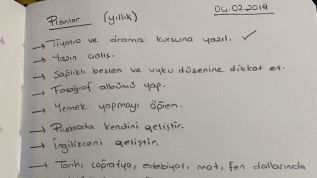 Planlar (yıllık)
04.02.2019
→ Tiyatro ve drama kursuna yazıl. ✓
→ Yazın çalış.
→ Sağlıklı beslen ve uyku düzenine dikkat et.
→ Fotoğraf albümü yap.
→ Yemek yapmayı öğren.
→ Piyanoda kendini geliştir.
→ İngilizceni geliştir.
→ Tarih, coğrafya, edebiyat, mat, fen dallarında